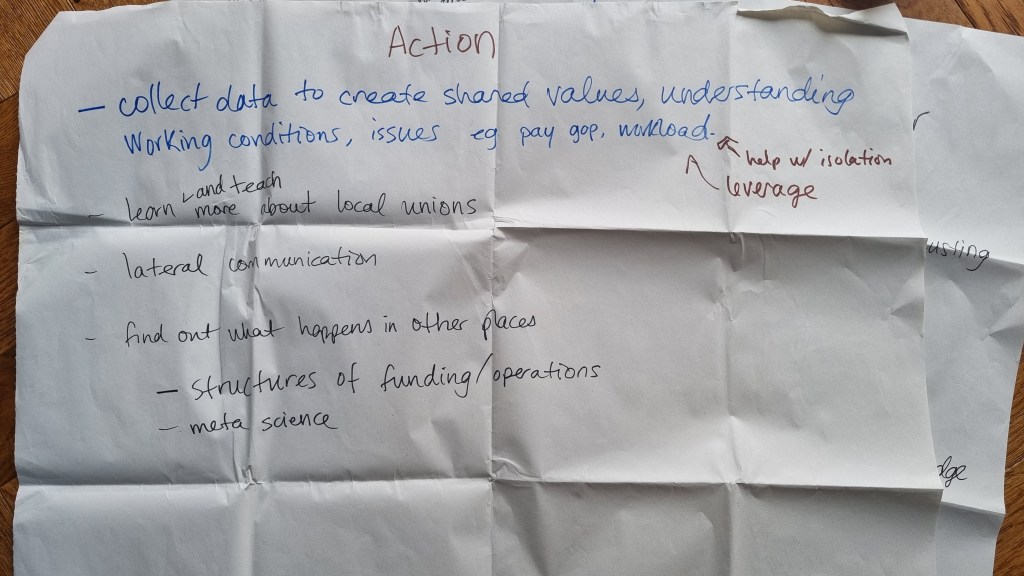 Action
— collect data to create shared values, understanding
working conditions, issues eg pay gap, workload.
help w/ isolation
leverage
and teach
- learn more about local unions
- lateral communication
- find out what happens in other places
— structures of funding/operations
— meta science
r
usting
dge